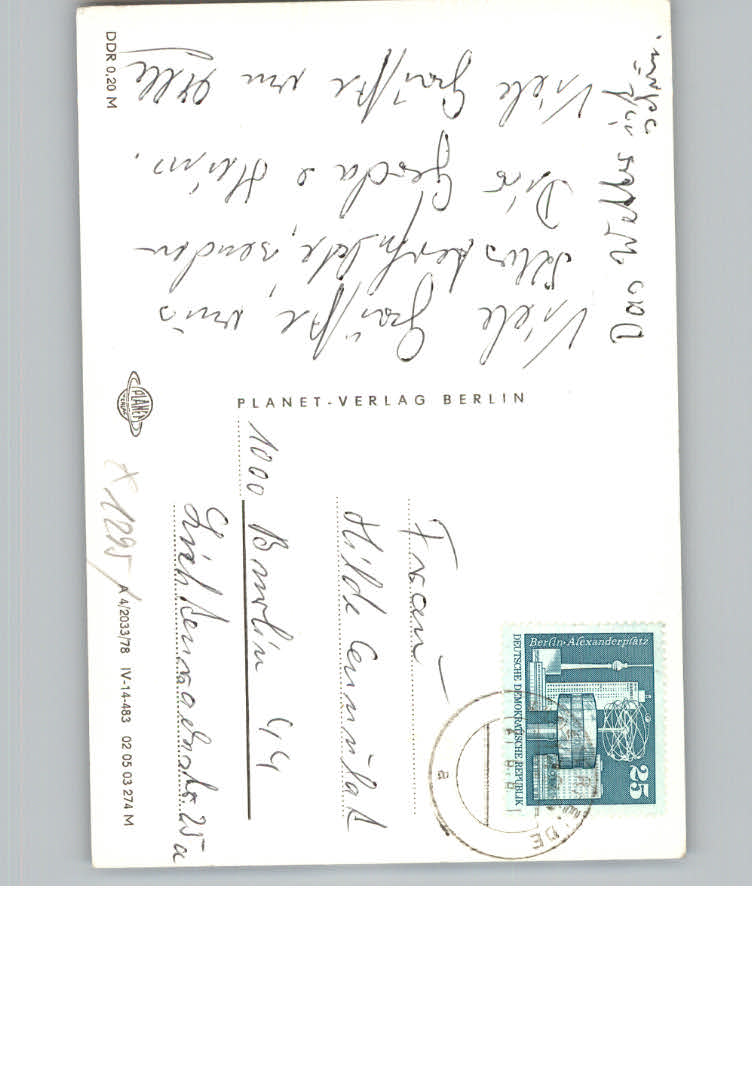 Viele Grüße aus
senden
Dir Gerda u Heinz.
Viele Grüße an Alle
Das Wetter ist
schön.
DDR 0,20 M
PLANET VERLAG
PLANET-VERLAG BERLIN
Frau
Hilde
1000 Berlin 44
25a
x 1295
A 4/2033/78 IV-14-483 02 05 03 274 M
Berlin-Alexanderplatz
DEUTSCHE DEMOKRATISCHE REPUBLIK
25
DE
a